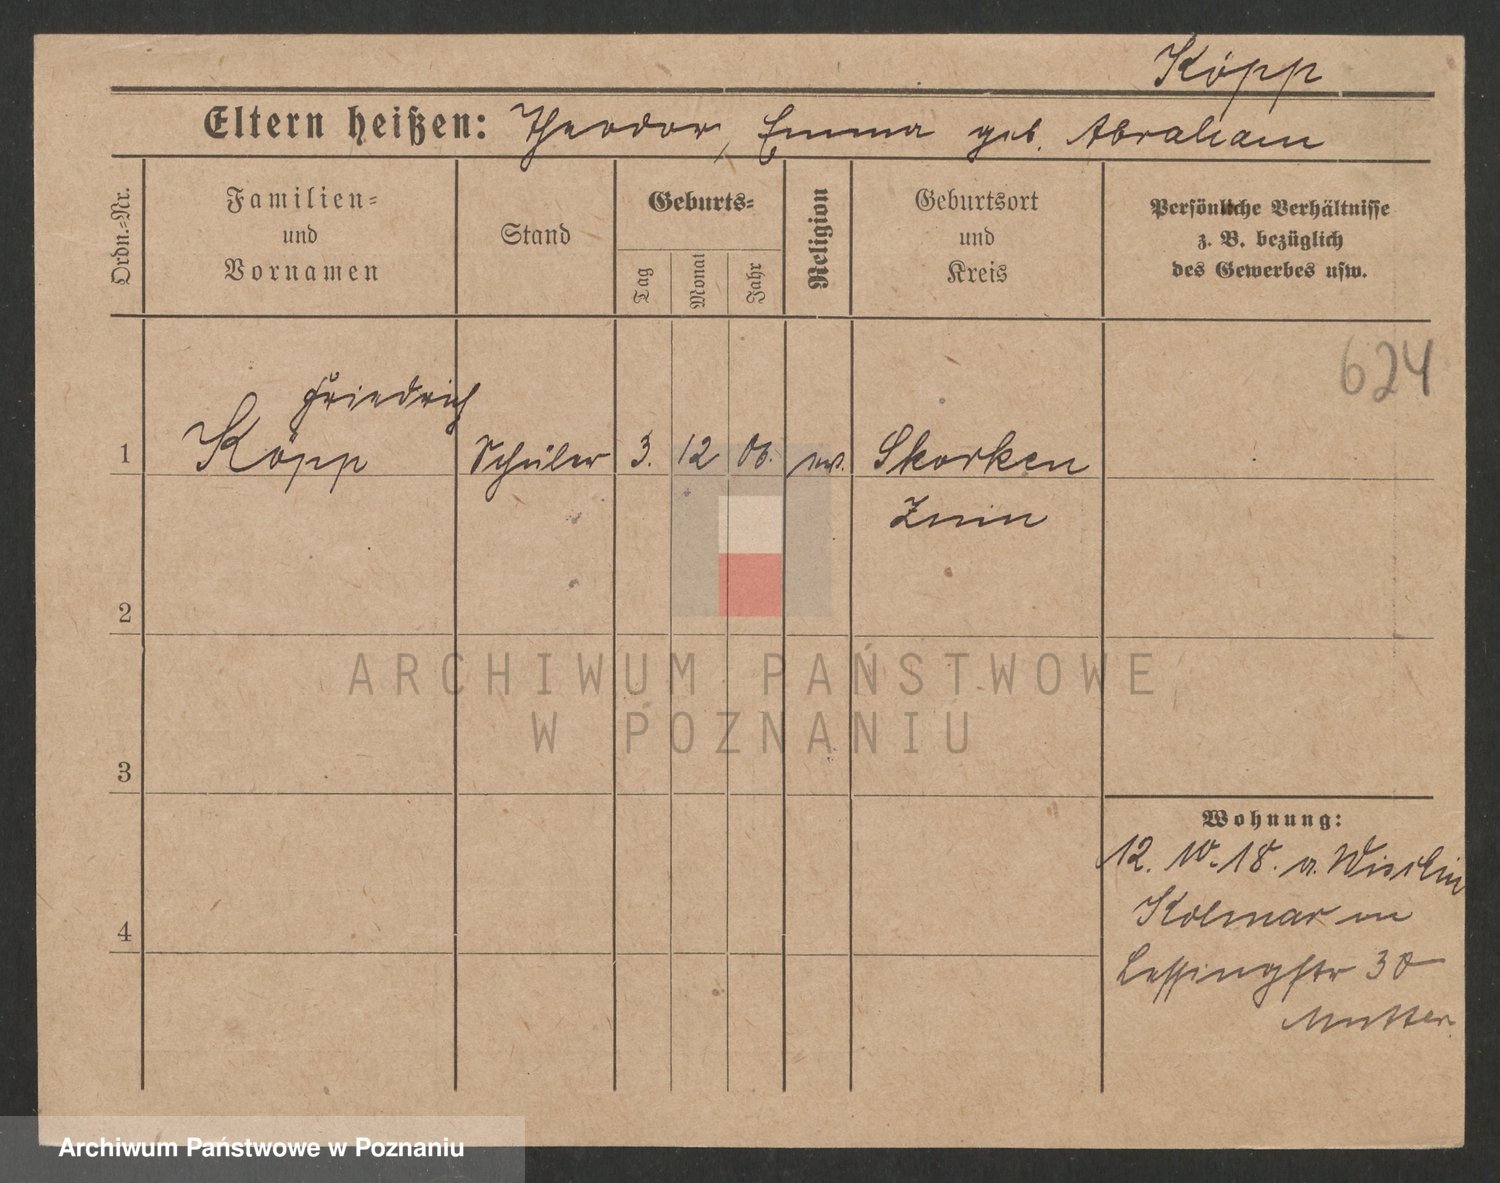 Köpp
Eltern heißen: Theodor, Emma geb. Abraham
Ordn.-Nr.
Familien-
und
Vornamen
Stand
Geburts-
Tag
Monat
Jahr
Religion
Geburtsort
und
Kreis
Persönliche Verhältnisse
z. B. bezüglich
des Gewerbes usw.
624
Friedrich
1 Köpp Schüler 3. 12 06. ev. Skorken
Znin
2
3
4
Wohnung:
12. 10. 18. a.
Kolmar in
Lessingstr 30
Mutter
ARCHIWUM PAŃSTWOWE
W POZNANIU
Archiwum Państwowe w Poznaniu